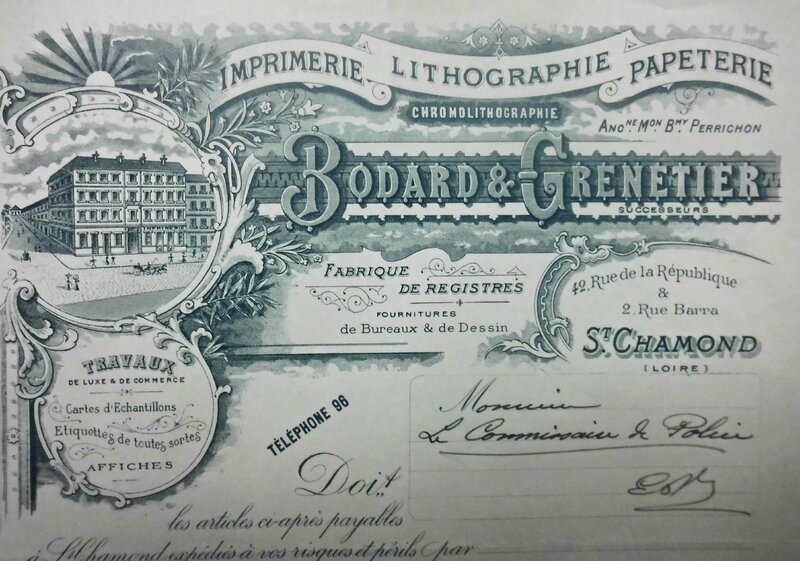 IMPRIMERIE LITHOGRAPHIE PAPETERIE
CHROMOLITHOGRAPHIE
ANC.NE MON. B.MY PERRICHON
BODARD & GRENETIER
SUCCESSEURS
FABRIQUE
DE REGISTRES
FOURNITURES
de Bureaux & de Dessin
42, Rue de la République
&
2, Rue Barra
ST. CHAMOND
(LOIRE)
TRAVAUX
DE LUXE & DE COMMERCE
Cartes d'Echantillons
Etiquettes de toutes sortes
AFFICHES
TÉLÉPHONE 96
Monsieur
Le Commissaire de Police
Doit
les articles ci-après payables
à St Chamond expédiés à vos risques et périls par